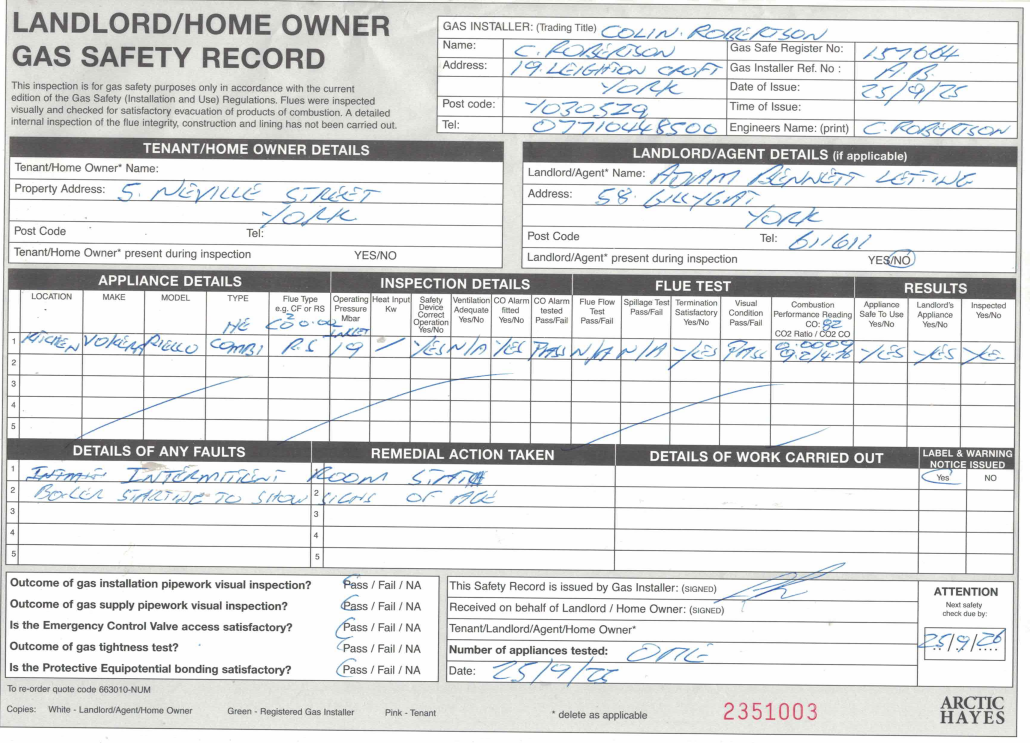 LANDLORD/HOME OWNER
GAS SAFETY RECORD
This inspection is for gas safety purposes only in accordance with the current
edition of the Gas Safety (Installation and Use) Regulations. Flues were inspected
visually and checked for satisfactory evacuation of products of combustion. A detailed
internal inspection of the flue integrity, construction and lining has not been carried out.
GAS INSTALLER: (Trading Title) COLIN. ROBERTSON
Name: C. ROBERTSON
Gas Safe Register No: 157664
Address: 19. LEIGHTON CROFT
Gas Installer Ref. No :
YORK
Date of Issue: 25/9/25
Post code: YO30 5
Time of Issue:
Tel: 07710448500
Engineers Name: (print) C. ROBERTSON
TENANT/HOME OWNER DETAILS
Tenant/Home Owner* Name:
Property Address: 5. NEVILLE STREET
YORK
Post Code Tel:
Tenant/Home Owner* present during inspection YES/NO
LANDLORD/AGENT DETAILS (if applicable)
Landlord/Agent* Name: ADAM BENNETT LETTING
Address: 58. GILLYGAT
YORK
Post Code Tel: 611611
Landlord/Agent* present during inspection YES/NO
APPLIANCE DETAILS INSPECTION DETAILS FLUE TEST RESULTS
LOCATION
MAKE
MODEL
TYPE
HE
Flue Type
e.g. CF or RS
Operating
Pressure
Mbar
INLET
Heat Input
Kw
Safety
Device
Correct
Operation
Yes/No
Ventilation
Adequate
Yes/No
CO Alarm
fitted
Yes/No
CO Alarm
tested
Pass/Fail
Flue Flow
Test
Pass/Fail
Spillage Test
Pass/Fail
Termination
Satisfactory
Yes/No
Visual
Condition
Pass/Fail
Combustion
Performance Reading
CO: 82
CO2 Ratio / CO2 CO
Appliance
Safe To Use
Yes/No
Landlord's
Appliance
Yes/No
Inspected
Yes/No
0.0009
1 KICHEN VOKERA RIELLO COMBI R.S 19 / YES N/A YES PASS N/A N/A YES PASS YES YES YE
2
3
4
5
DETAILS OF ANY FAULTS REMEDIAL ACTION TAKEN DETAILS OF WORK CARRIED OUT LABEL & WARNING
NOTICE ISSUED
1 INTERMITTENT ROOM STAT Yes NO
2 BOILER STARTING TO SHOW 2 SIGNS OF AGE
3 3
4 4
5 5
Outcome of gas installation pipework visual inspection? Pass / Fail / NA
Outcome of gas supply pipework visual inspection? Pass / Fail / NA
Is the Emergency Control Valve access satisfactory? Pass / Fail / NA
Outcome of gas tightness test? Pass / Fail / NA
Is the Protective Equipotential bonding satisfactory? Pass / Fail / NA
This Safety Record is issued by Gas Installer: (SIGNED)
Received on behalf of Landlord / Home Owner: (SIGNED)
Tenant/Landlord/Agent/Home Owner*
Number of appliances tested: ONE
Date: 25/9/25
ATTENTION
Next safety
check due by:
25/9/26
To re-order quote code 663010-NUM
Copies: White - Landlord/Agent/Home Owner Green - Registered Gas Installer Pink - Tenant
* delete as applicable
2351003
ARCTIC
HAYES